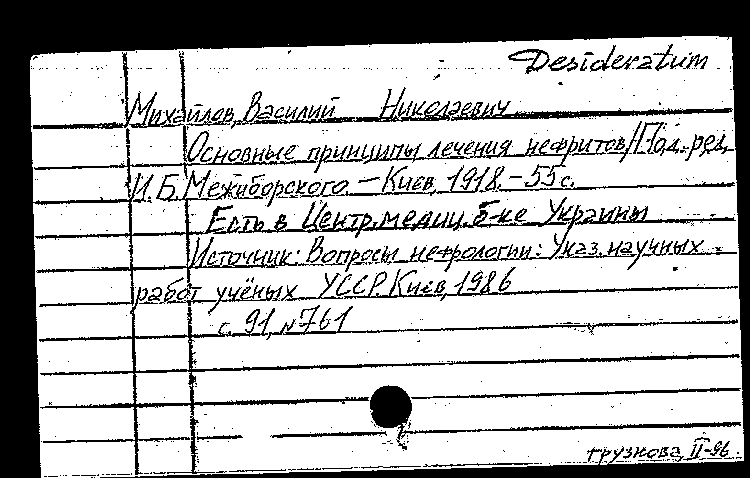 Desideratum
Михайлов, Василий Николаевич
Основные принципы лечения нефритов/Под. ред.
И.Б. Межиборского. — Киев, 1918. — 55 с.
Есть в Центр. медиц. б-ке Украины
Источник: Вопросы нефрологии: Указ. научных
работ учёных УССР. Киев, 1986
с. 91, №761
грузнова, II-96.